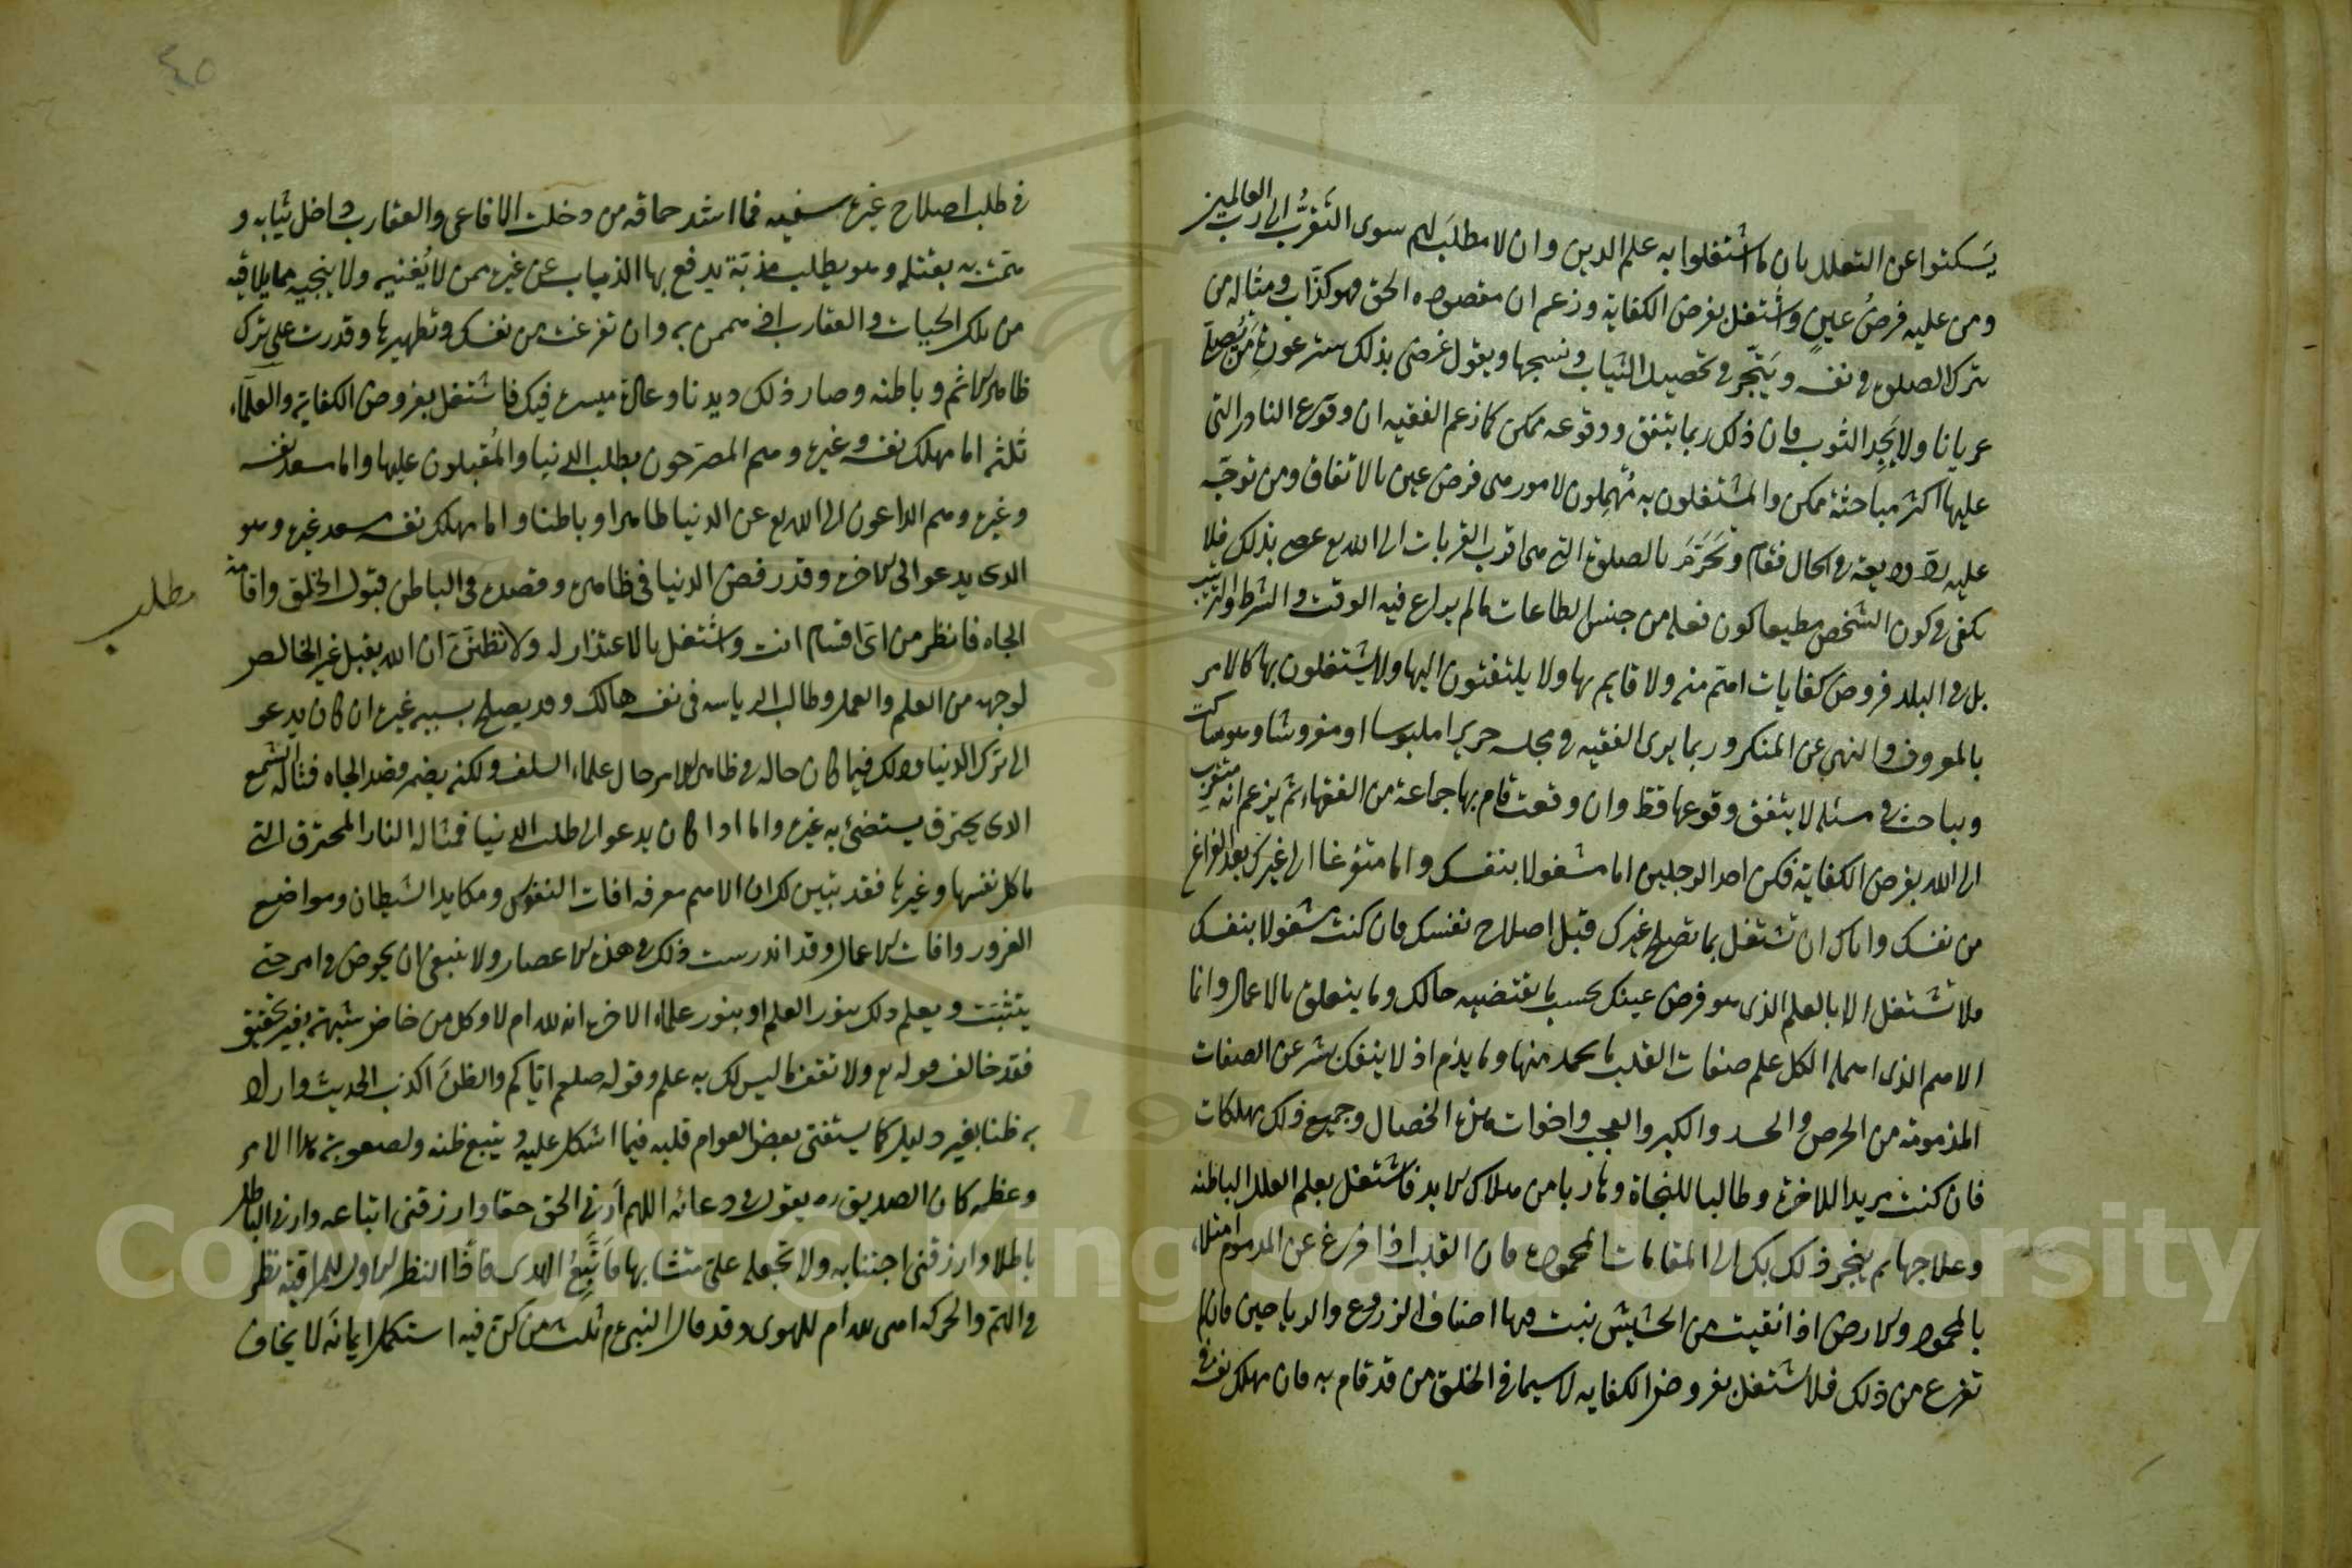 يسكتوا عن التعلل بان ما اشتغلوا به علم الدين وان لا مطلب لهم سوى التقرُّب الى رب العالمين
ومن عليه فرضُ عينٍ واشتغل بفرض الكفاية وزعم ان مقصوده الحق فهو كذّاب ومثاله من
يترك الصلوة في نفسه ويتّجر في تحصيل الثياب ونسجها ويقول غرضي بذلك ستر عورة من يُصلّي
عريانا ولا يجد الثوب فان ذلك ربما يتفق ووقوعه ممكن كما زعم الفقيه ان وقوع النادر التي
عليها اكثر مباحثه ممكن والمشتغلون به مُهمِلون لامور هي فرض عين بالاتفاق ومن توجّه
عليه ردّ وديعة في الحال فقام وتحرّمَ بالصلوة التي هي اقرب القربات الى الله تع عصى بذلك فلا
يكفي في كون الشخص مطيعا كون فعله من جنس الطاعات ما لم يراع فيه الوقت والشرط والترتيب
بل في البلد فروض كفايات اهم منه ولا قايم بها ولا يلتفتون اليها ولا يشتغلون بها كالامر
بالمعروف والنهي عن المنكر وربما يرى الفقيه في مجلسه حريرا ملبوسا او مفروشا وهو ساكت
ويباحث في مسئلة لا يتفق وقوعها قط وان وقعت قام بها جماعة من الفقهاء ثم يزعم انه متقرب
الى الله بفرض الكفاية فكن احد الرجلين اما مشغولا بنفسك واما متفرغا الى غيرك بعد الفراغ
من نفسك واياك ان تشتغل بما يصلح غيرك قبل اصلاح نفسك فان كنت مشغولا بنفسك
فلا تشتغل الا بالعلم الذي هو فرض عينك بحسب ما يقتضيه حالك وما يتعلق بالاعمال وانما
الاهم الذي اهمله الكل علم صفات القلب ما يحمد منها وما يذم اذ لا ينفك بشر عن الصفات
المذمومة من الحرص والحسد والكبر والعجب واخوات هذه الخصال وجميع ذلك مهلكات
فان كنت مريدا للاخرة وطالبا للنجاة وهاربا من هلاك الابد فاشتغل بعلم العلل الباطنة
وعلاجها ثم ينجر ذلك بك الى المقامات المحمودة فان القلب اذا فرغ عن المذموم امتلاء
بالمحمود والارض اذا نقيت من الحشيش نبت فيها اصناف الزروع والرياحين فان لم
تفرغ من ذلك فلا تشتغل بفروض الكفايه لا سيما في الخلق من قد قام به فان مهلك نفسه
في طلب اصلاح غيره سفيه فما اشد حماقة من دخلت الافاعي والعقارب داخل ثيابه و
همّت به بقتله وهو يطلب مذبّة يدفع بها الذباب عن غيره ممن لا يُغنيه ولا ينجيه مما يلاقيه
من تلك الحيات والعقارب اذ هممن به وان تفرغت من نفسك وتطهيرها وقدرت على ترك
ظاهر الاثم وباطنه وصار ذلك ديدنا وعادة ميسرة فيك فاشتغل بفروض الكفاية والعلماء
ثلثة اما مهلك نفسه وغيره وهم المصرحون بطلب الدنيا والمُقبلون عليها واما مسعد نفسه
وغيره وهم الداعون الى الله تع عن الدنيا ظاهرا وباطنا واما مهلك نفسه مسعد غيره وهو
الذي يدعو الى الاخرة وقد رفض الدنيا في ظاهره وقصده في الباطن قبول الخلق واقامة
مطلب
الجاه فانظر من اىّ اقسام انت واشتغل بالاعتذار له ولا تظنّنّ ان الله يقبل غير الخالص
لوجهه من العلم والعمل وطالب الرياسه في نفسه هالك وقد يصلح بسببه غيره ان كان يدعو
الى ترك الدنيا وذلك فيما كان حاله في ظاهر الامر حال علماء السلف ولكنه يضمر قصد الجاه فمثاله الشمع
الذي يحترق يستضئ به غيره واما اذا كان يدعو الى طلب الدنيا فمثاله النار المحترقة التي
تاكل نفسها وغيرها فقد تبين لك ان الاهم معرفة افات النفوس ومكايد الشيطان ومواضع
الغرور وافات الاعمال وقد اندرست ذلك في هذه الاعصار ولا ينبغي ان يخوض في امر حتى
يتثبّت ويعلم ذلك بنور العلم او بنور علماء الاخرة انه لله ام لا وكل من خاض شبهة بغير تحقيق
فقد خالف قوله تع ولا تقف ما ليس لك به علم وقوله صلعم اياكم والظنّ اكذب الحديث واراد
به ظنا بغير دليل كما يستفتى بعض العوام قلبه فيما اشكل عليه ويتبع ظنه ولصعوبة هذا الامر
وعظمه كان الصديق رض يقول في دعائه اللهم أرني الحق حقا وارزقني اتباعه وارني الباطل
باطلا وارزقني اجتنابه ولا تجعله عليّ متشابها فأتّبع الهوى فاذا النظر الاول للمراقبة نظر
في الهمّ والحركة اهي لله ام للهوى وقد قال النبي ع م ثلث من كن فيه استكمل ايمانه لا يخاف